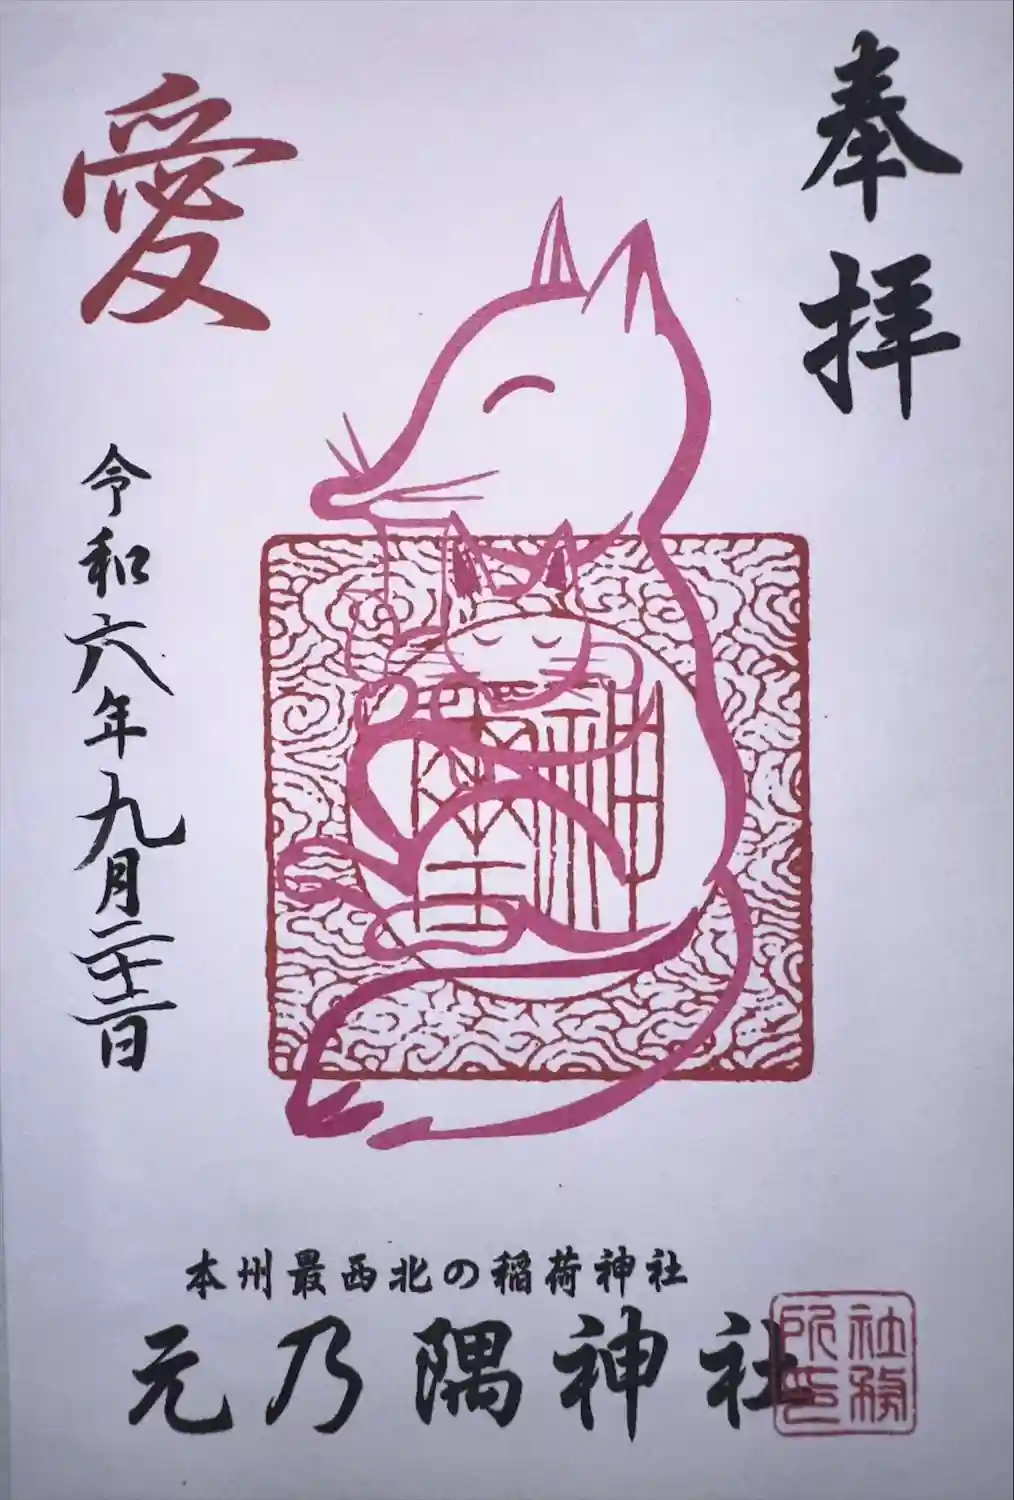 奉拝
愛
令和六年九月二十二日
神璽
本州最西北の稲荷神社
元乃隅神社
社務
所印